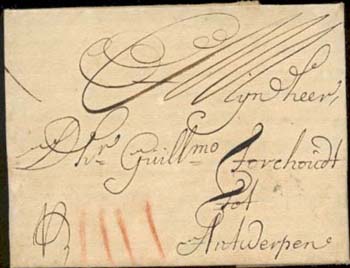 Mijn heer,
D'hr. Guill.mo Forchoudt
Tot
Antwerpen